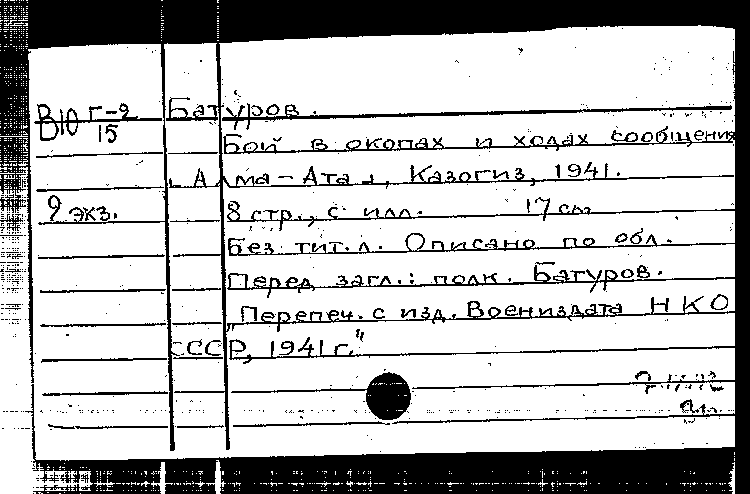 В10 Г-2/15 Батуров.
Бой в окопах и ходах сообщения
[Алма-Ата], Казогиз, 1941.
2 экз. 8 стр., с илл. 17 см
Без тит. л. Описано по обл.
Перед загл.: полк. Батуров.
"Перепеч. с изд. Воениздата НКО
СССР, 1941 г."